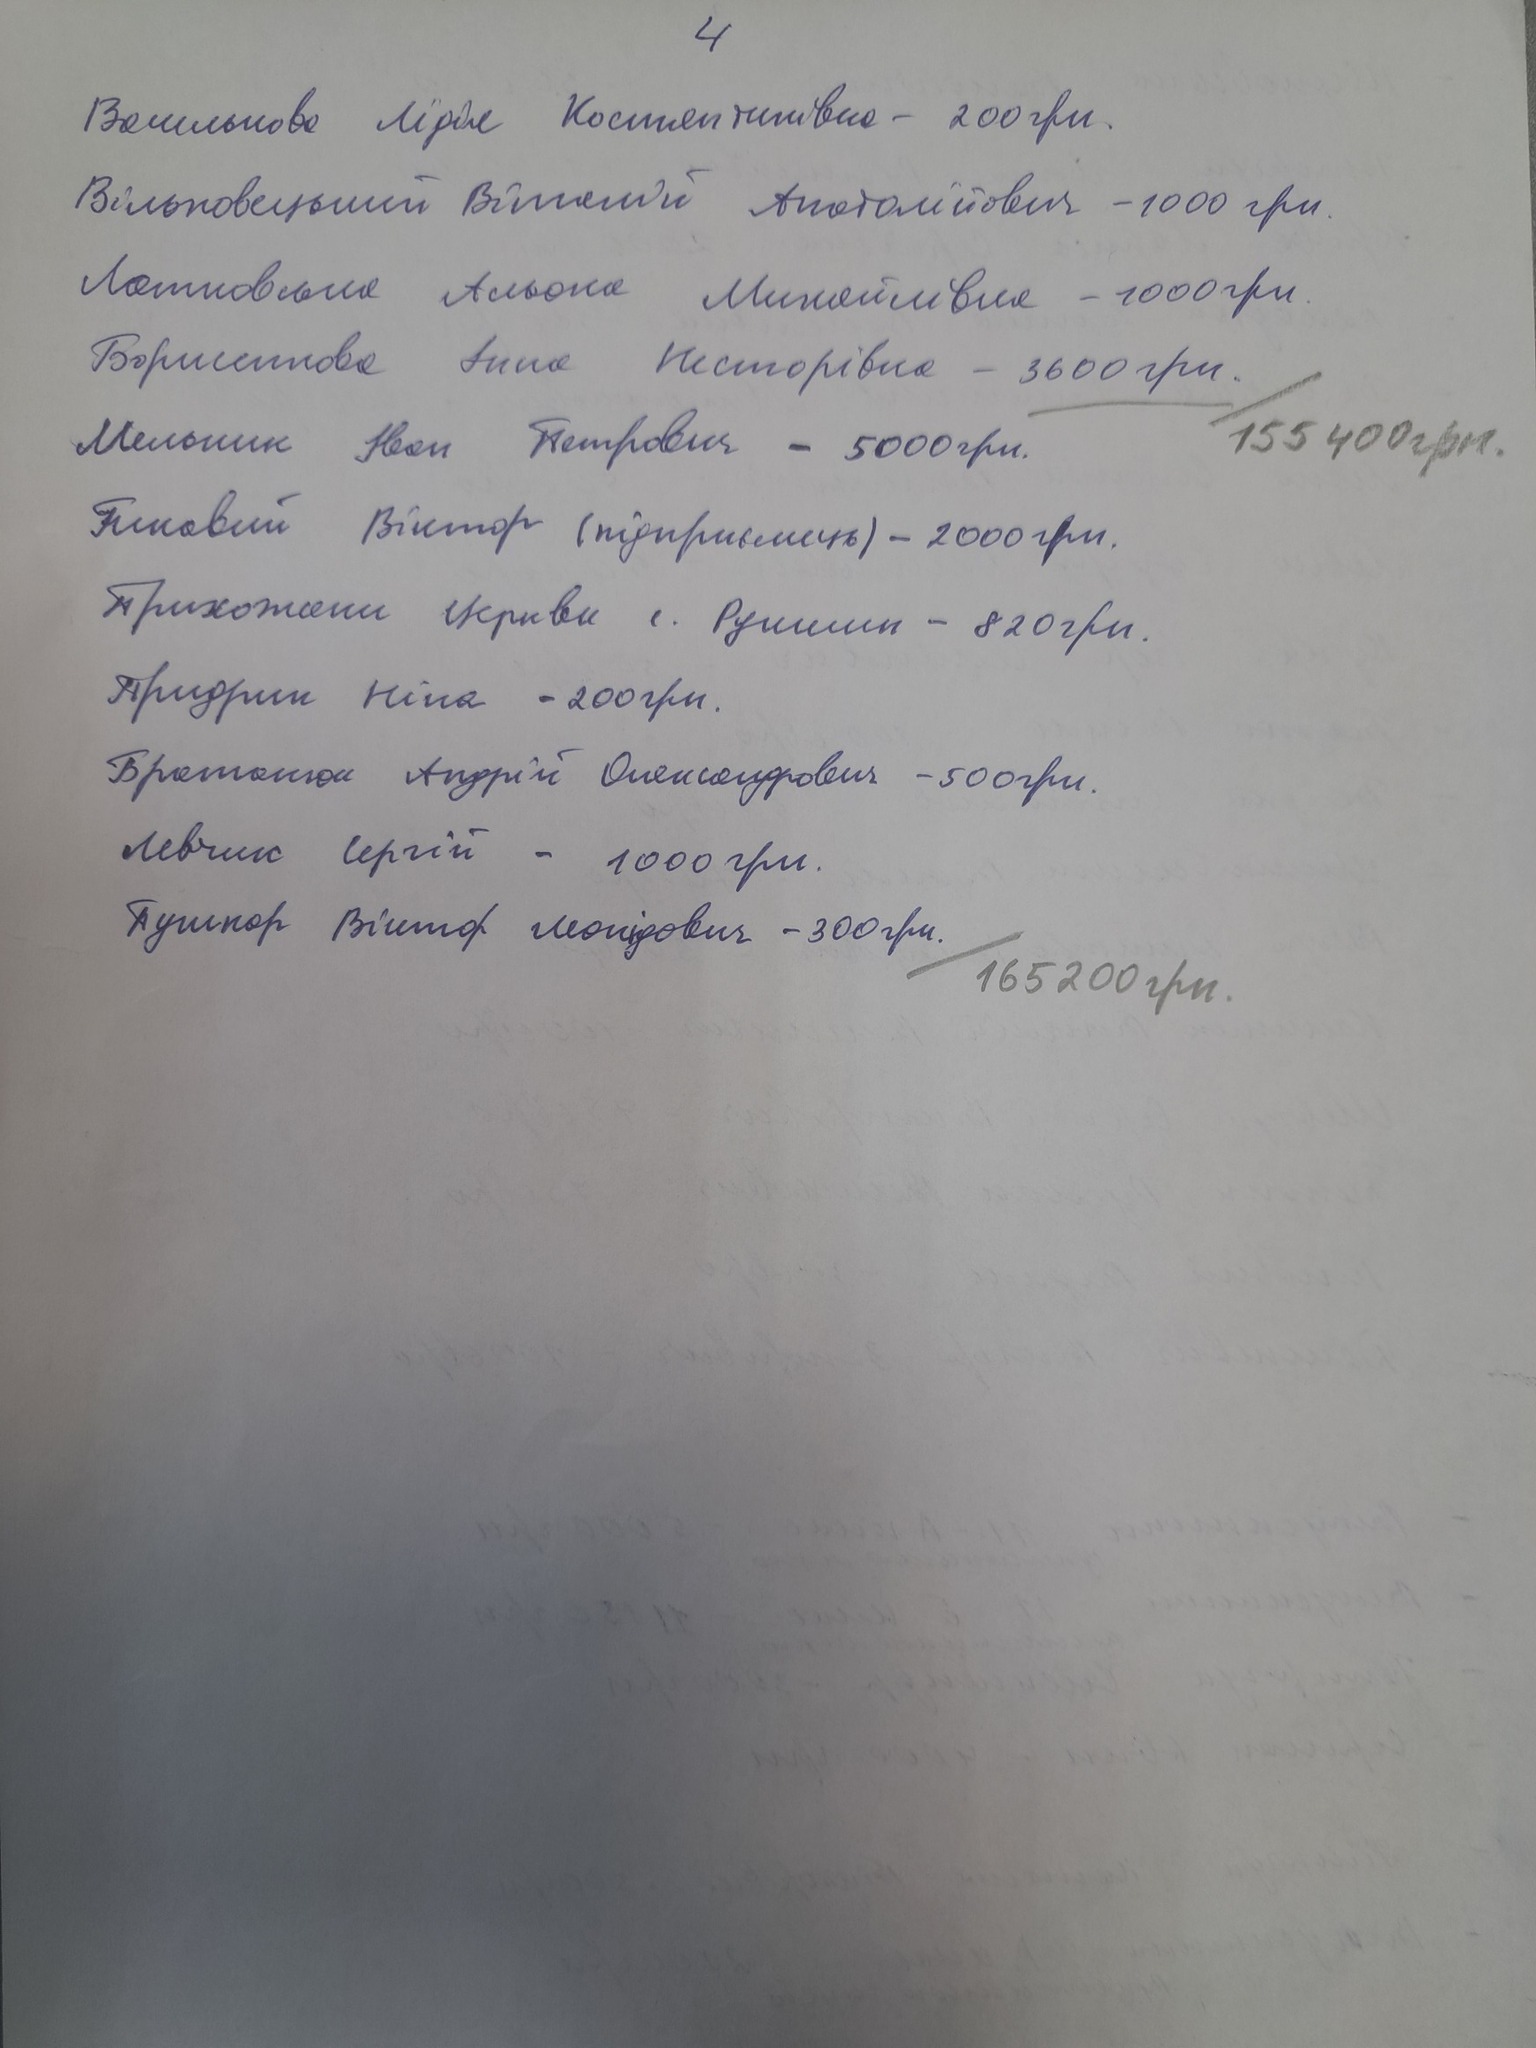 4
Василькова Лідія Костянтинівна - 200 грн.
Вільховецький Віталій Анатолійович - 1000 грн.
Лятковська Альона Михайлівна - 1000 грн.
Борисенкова Інна Несторівна - 3600 грн.
155 400 грн.
Мельник Іван Петрович - 5000 грн.
Пиковий Віктор (підприємець) - 2000 грн.
Прихожани церкви с. - 820 грн.
Ніна - 200 грн.
Братанюк Андрій Олександрович - 500 грн.
Левчик Сергій - 1000 грн.
Пушкар Віктор Леонідович - 300 грн.
165 200 грн.